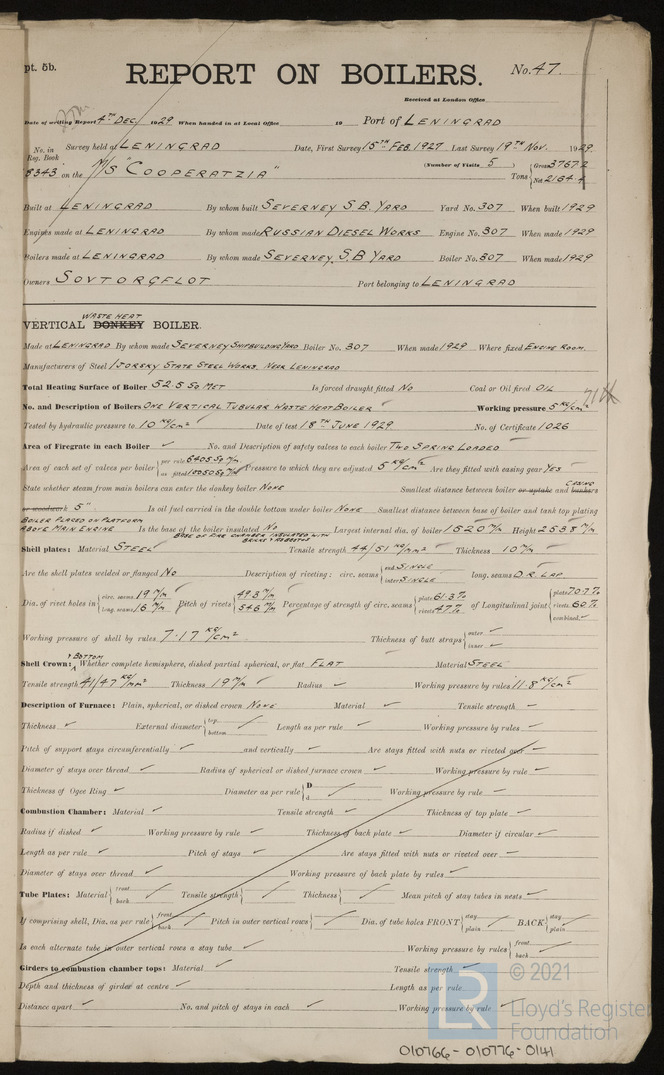 pt. 5b.
REPORT ON BOILERS.
No. 47.
Received at London Office
Date of writing Report 4TH DEC. 1929 When handed in at Local Office 19 Port of LENINGRAD
No. in Reg. Book Survey held at LENINGRAD Date, First Survey 15TH FEB. 1927 Last Survey 19TH NOV. 1929
8343 on the M/S "COOPERATZIA" (Number of Visits 5 ) Tons { Gross 3767.2 Net 2164.4
Built at LENINGRAD By whom built SEVERNEY S.B. YARD Yard No. 307 When built 1929
Engines made at LENINGRAD By whom made RUSSIAN DIESEL WORKS Engine No. 307 When made 1929
Boilers made at LENINGRAD By whom made SEVERNEY. S.B YARD Boiler No. 307 When made 1929
Owners SOVTORGFLOT Port belonging to LENINGRAD
WASTE HEAT
VERTICAL DONKEY BOILER.
Made at LENINGRAD By whom made SEVERNEY SHIPBUILDING YARD Boiler No. 307 When made 1929 Where fixed ENGINE ROOM.
Manufacturers of Steel IJORSKY STATE STEEL WORKS. NEAR LENINGRAD
Total Heating Surface of Boiler 52.5 SQ MET Is forced draught fitted NO Coal or Oil fired OIL
No. and Description of Boilers ONE VERTICAL TUBULAR WASTE HEAT BOILER Working pressure 5 KG/CM²
Tested by hydraulic pressure to 10 KG/CM² Date of test 18TH JUNE 1929 No. of Certificate 1026
Area of Firegrate in each Boiler ✓ No. and Description of safety valves to each boiler TWO SPRING LOADED
Area of each set of valves per boiler { per rule 6405 SQ M/M as fitted 10050 SQ M/M Pressure to which they are adjusted 5 KG/CM² Are they fitted with easing gear YES
State whether steam from main boilers can enter the donkey boiler NONE Smallest distance between boiler or uptake and bunkers CASING
or woodwork 5" Is oil fuel carried in the double bottom under boiler NONE Smallest distance between base of boiler and tank top plating
BOILER PLACED ON PLATFORM
ABOVE MAIN ENGINE Is the base of the boiler insulated NO Largest internal dia. of boiler 1520 M/M Height 2538 M/M
BASE OF FIRE CHAMBER INSULATED WITH
BRICKS & ASBESTOS
Shell plates: Material STEEL Tensile strength 44/51 KG/MM² Thickness 10 M/M
Are the shell plates welded or flanged NO Description of riveting: circ. seams { end SINGLE inter SINGLE long. seams D.R. LAP.
Dia. of rivet holes in { circ. seams 19 M/M long. seams 16 M/M Pitch of rivets { 49.3 M/M 54.6 M/M Percentage of strength of circ. seams { plate 61.3% rivets 47% of Longitudinal joint { plate 70.7% rivets 60% combined ✓
Working pressure of shell by rules 7.17 KG/CM² Thickness of butt straps { outer ✓ inner ✓
& BOTTOM
Shell Crown: Whether complete hemisphere, dished partial spherical, or flat FLAT Material STEEL
Tensile strength 41/47 KG/MM² Thickness 19 M/M Radius ✓ Working pressure by rules 11.8 KG/CM²
Description of Furnace: Plain, spherical, or dished crown NONE Material ✓ Tensile strength ✓
Thickness ✓ External diameter { top bottom ✓ Length as per rule ✓ Working pressure by rules ✓
Pitch of support stays circumferentially ✓ and vertically ✓ Are stays fitted with nuts or riveted over ✓
Diameter of stays over thread ✓ Radius of spherical or dished furnace crown ✓ Working pressure by rule ✓
Thickness of Ogee Ring ✓ Diameter as per rule { D d ✓ Working pressure by rule ✓
Combustion Chamber: Material ✓ Tensile strength ✓ Thickness of top plate ✓
Radius if dished ✓ Working pressure by rule ✓ Thickness of back plate ✓ Diameter if circular ✓
Length as per rule ✓ Pitch of stays ✓ Are stays fitted with nuts or riveted over ✓
Diameter of stays over thread ✓ Working pressure of back plate by rules ✓
Tube Plates: Material { front back ✓ Tensile strength { ✓ Thickness { ✓ Mean pitch of stay tubes in nests ✓
If comprising shell, Dia. as per rule { front back ✓ Pitch in outer vertical rows { ✓ Dia. of tube holes FRONT { stay plain ✓ BACK { stay plain ✓
Is each alternate tube in outer vertical rows a stay tube ✓ Working pressure by rules { front back ✓
Girders to combustion chamber tops: Material ✓ Tensile strength ✓
Depth and thickness of girder at centre ✓ Length as per rule
Distance apart ✓ No. and pitch of stays in each ✓ Working pressure by rule ✓
© 2021
LR
Lloyd's Register
Foundation
010766-010776-0141